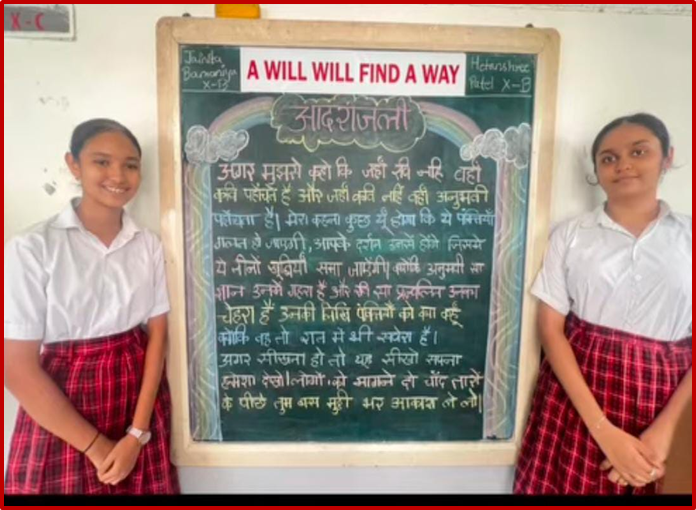 X-C
Jainita
Bamaniya
X-B
A WILL WILL FIND A WAY
Hetanshree
Patel X-B
आदरांजली
अगर मुझसे कहो कि जहाँ रवि नहि वहाँ
कवि पहोंचते हैं और जहाँ कवि नहि वहाँ अनुभवी
पहोंचता है। मेरा कहना कुछ यूँ होगा कि ये पंक्तियाँ
गलत हो जाएगी, आपके दर्शन उनसे होंगे जिसमे
ये तीनों खूबियाँ समा जाएगी। क्योंकि अनुभवी सा
ज्ञान उनमे गहरा है और रवि सा प्रज्वलित उनका
चेहरा है उनकी लिखि पंक्तियों को क्या कहूँ
क्योंकि वह तो रात में भी सवेरा है।
अगर सीखना हो तो यह सीखो सपना
हमेशा देखो। लोगों को भागने दो चाँद तारो
के पीछे तुम बस मुट्ठी भर आकाश ले लो।